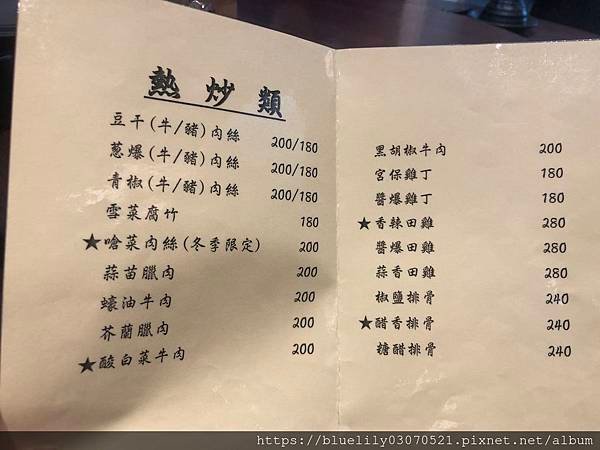 熱炒類
豆干(牛/豬)肉絲 200/180
蔥爆(牛/豬)肉絲 200/180
青椒(牛/豬)肉絲 200/180
雪菜腐竹 180
★嗆菜肉絲(冬季限定) 200
蒜苗臘肉 200
蠔油牛肉 200
芥蘭臘肉 200
★酸白菜牛肉 200
黑胡椒牛肉 200
宮保雞丁 180
醬爆雞丁 180
★香辣田雞 280
醬爆田雞 280
蒜香田雞 280
椒鹽排骨 240
★醋香排骨 240
糖醋排骨 240
https://bluelily03070521.pixnet.net/album